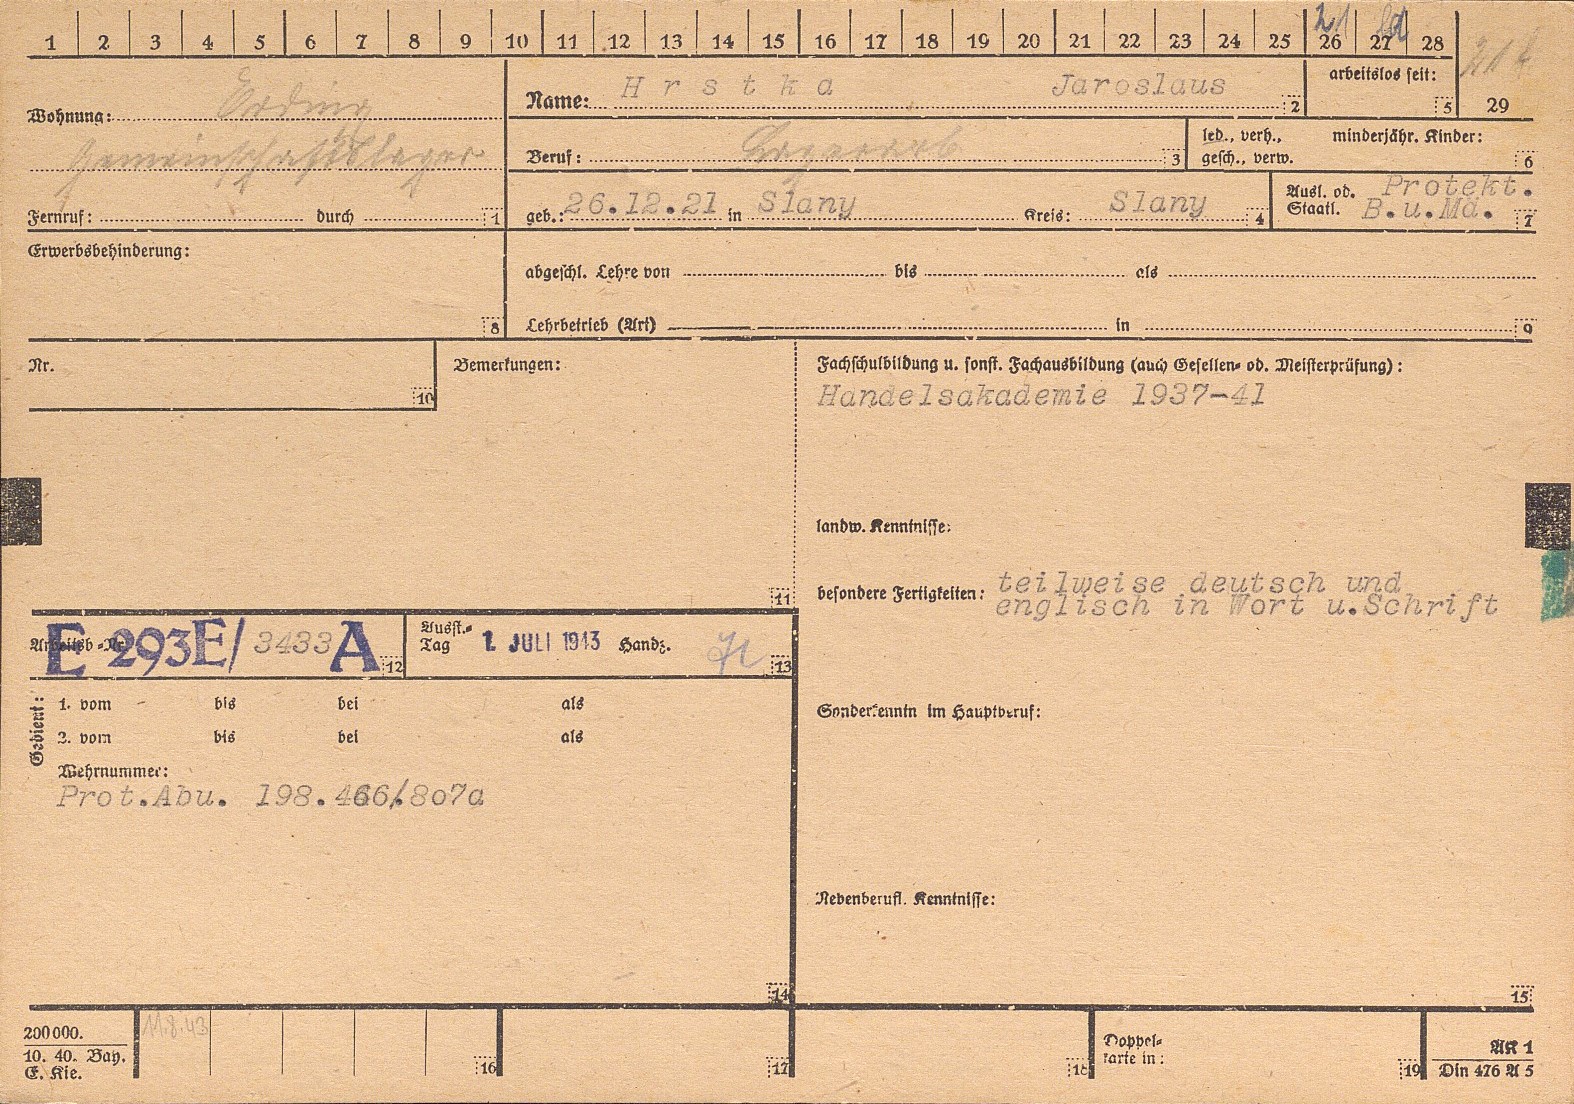 1 2 3 4 5 6 7 8 9 10 11 12 13 14 15 16 17 18 19 20 21 22 23 24 25 26 27 28
21
arbeitslos seit:
5
29
Name: Hrstka Jaroslaus 2
Wohnung: Erding
Gemeinschaftslager
Fernruf: durch 1
Beruf: Lagerarb 3
led., verh., gesch., verw.
minderjähr. Kinder:
6
geb.: 26.12.21 in Slany Kreis: Slany 4
Ausl. od. Protekt.
Staatl. B.u.Mä. 7
Erwerbsbehinderung:
8
abgeschl. Lehre von bis als
Lehrbetrieb (Art) in 9
Nr.
10
Bemerkungen:
11
Fachschulbildung u. sonst. Fachausbildung (auch Gesellen- od. Meisterprüfung):
Handelsakademie 1937-41
landw. Kenntnisse:
besondere Fertigkeiten: teilweise deutsch und
englisch in Wort u.Schrift
Sonderkenntn im Hauptberuf:
Nebenberufl. Kenntnisse:
15
Arbeitsb.-Nr. E 293E/3433 A 12
Ausst.-
Tag 1. JULI 1943 Handz.
13
Gedient:
1. vom bis bei als
2. vom bis bei als
Wehrnummer:
Prot.Abu. 198.466/.807a
14
200000.
10. 40. Bay.
E. Kie.
11.8.43
16
17
18
Doppel-
karte in:
19
AK 1
Din 476 A 5